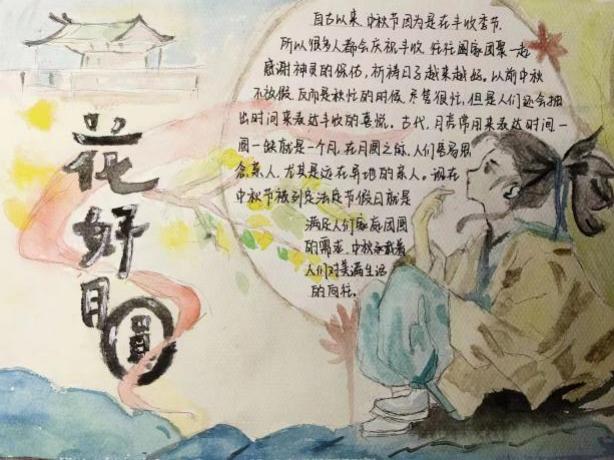 花好月圓
自古以来,中秋节因为是在丰收季节,
所以很多人都会庆祝丰收,往往阖家团聚一起
感谢神灵的保佑,祈祷日子越来越好。以前中秋
不放假,反而是秋忙的时候,尽管很忙,但是人们还会抽
出时间来表达丰收的喜悦。古代,月亮常用来表达时间一
圆一缺就是一个月,在月圆之际,人们容易思
念亲人,尤其是远在异地的亲人。现在
中秋节被列是法定节假日就是
满足人们家庭团圆
的需求,中秋承载着
人们对美满生活
的向往。